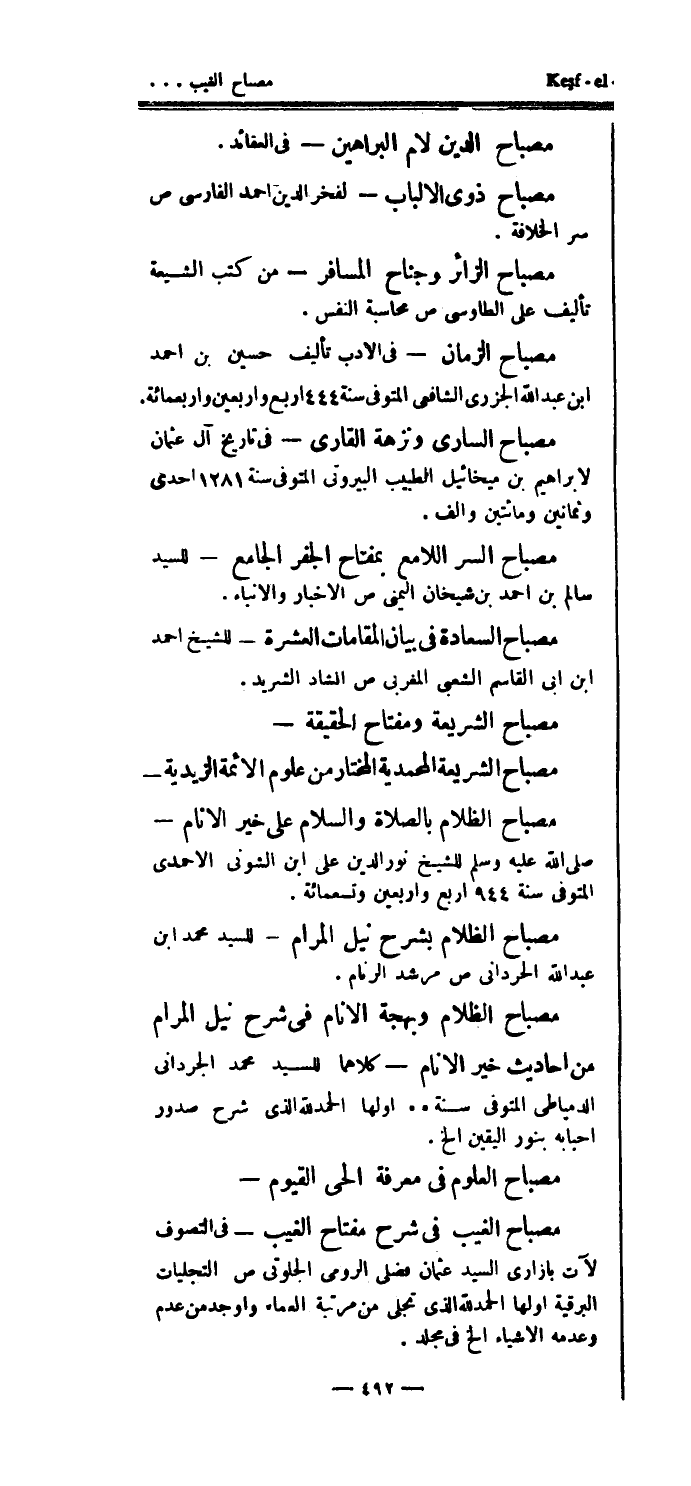 Keşf-el-
مصباح الغيب . . .
مصباح الدين لام البراهين — فى العقائد .
مصباح ذوى الالباب — لفخر الدين احمد الفارسى ص
سر الخلافة .
مصباح الزائر وجناح المسافر — من كتب الشيعة
تأليف على الطاوسى ص محاسبة النفس .
مصباح الزمان — فى الادب تأليف حسين بن احمد
ابن عبدالله الجزرى الشافعى المتوفى سنة ٤٤٤ اربع واربعين واربعمائة.
مصباح السارى ونزهة القارى — فى تاريخ آل عثمان
لابراهيم بن ميخائيل الطبيب البيروتى المتوفى سنة ١٢٨١ احدى
وثمانين ومائتين والف .
مصباح السر اللامع بمفتاح الجفر الجامع — للسيد
سالم بن احمد بن شيخان اليمنى ص الاخبار والانباء .
مصباح السعادة فى بيان المقامات العشرة — للشيخ احمد
ابن ابى القاسم الشعبى المغربى ص الشاد الشريد .
مصباح الشريعة ومفتاح الحقيقة —
مصباح الشريعة المحمدية المختار من علوم الائمة الزيدية —
مصباح الظلام بالصلاة والسلام على خير الانام —
صلى الله عليه وسلم للشيخ نورالدين على ابن الشونى الاحمدى
المتوفى سنة ٩٤٤ اربع واربعين وتسعمائة .
مصباح الظلام بشرح نيل المرام — للسيد محمد ابن
عبدالله الجردانى ص مرشد الرنام .
مصباح الظلام وبهجة الانام فى شرح نيل المرام
من احاديث خير الانام — كلاهما للسيد محمد الجردانى
الدمياطى المتوفى سنة . . اولها الحمدلله الذى شرح صدور
احبابه بنور اليقين الخ .
مصباح العلوم فى معرفة الحى القيوم —
مصباح الغيب فى شرح مفتاح الغيب — فى التصوف
لآت بازارى السيد عثمان فضلى الرومى الجلوتى ص التجليات
البرقية اولها الحمدلله الذى تجلى من مرتبة العماء واوجد من عدم
وعدمه الاشياء الخ فى مجلد .
— ٤٩٢ —